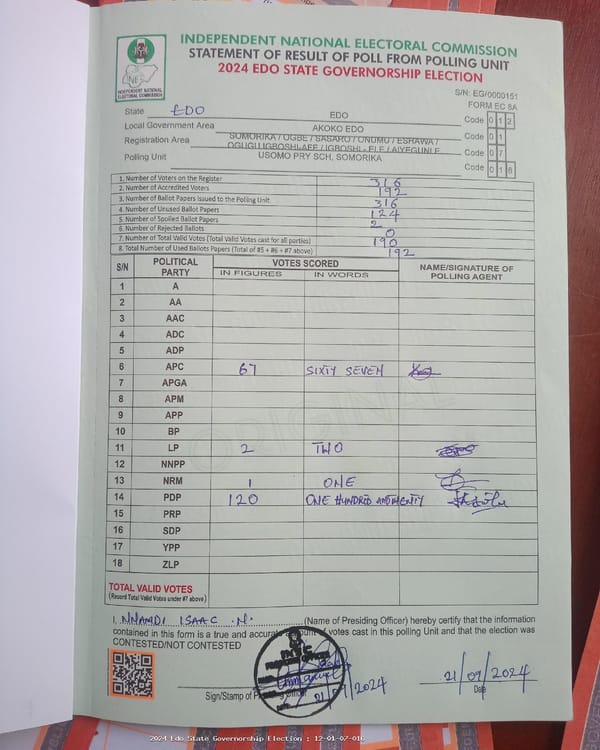 INDEPENDENT NATIONAL ELECTORAL COMMISSION
STATEMENT OF RESULT OF POLL FROM POLLING UNIT
2024 EDO STATE GOVERNORSHIP ELECTION
INDEPENDENT NATIONAL ELECTORAL COMMISSION
S/N: EG/0000151
FORM EC 8A
State EDO EDO Code 0 1 2
Local Government Area AKOKO EDO Code 0 1
Registration Area SOMORIKA / OGBE / SASARO / ONUMU / ESHAWA / OGUGU IGBOSHI-AFE / IGBOSHI - ELE / AIYEGUNLE Code 0 7
Polling Unit USOMO PRY SCH, SOMORIKA Code 0 1 6
1. Number of Voters on the Register 316
2. Number of Accredited Voters 192
3. Number of Ballot Papers Issued to the Polling Unit 316
4. Number of Unused Ballot Papers 124
5. Number of Spoiled Ballot Papers 2
6. Number of Rejected Ballots 0
7. Number of Total Valid Votes (Total Valid Votes cast for all parties) 190
8. Total Number of Used Ballots Papers (Total of #5 + #6 + #7 above) 192
S/N POLITICAL PARTY VOTES SCORED NAME/SIGNATURE OF POLLING AGENT
IN FIGURES IN WORDS
1 A
2 AA
3 AAC
4 ADC
5 ADP
6 APC 67 SIXTY SEVEN
7 APGA
8 APM
9 APP
10 BP
11 LP 2 TWO
12 NNPP
13 NRM 1 ONE
14 PDP 120 ONE HUNDRED AND TWENTY
15 PRP
16 SDP
17 YPP
18 ZLP
TOTAL VALID VOTES
(Record Total Valid Votes under #7 above)
I, NNAMDI ISAAC .N. (Name of Presiding Officer) hereby certify that the information
contained in this form is a true and accurate account of votes cast in this polling Unit and that the election was
CONTESTED/NOT CONTESTED
21/09/2024
21/09/2024
Sign/Stamp of Presiding Officer Date
2024 Edo State Governorship Election : 12-01-07-016